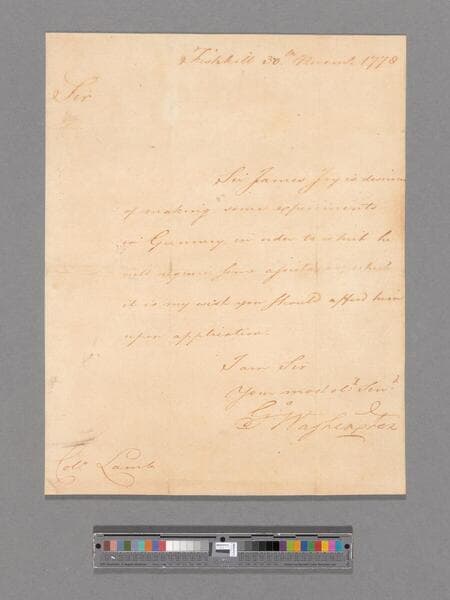 Fishkill 30th Novemb. 1778
Sir
Sir James Jay is desirous
of making some experiments
in Gunnery in order to which he
will require some assistance, which
it is my wish you should afford him
upon application.
I am Sir
Your most obt Servt
Go Washington
Colo Lamb